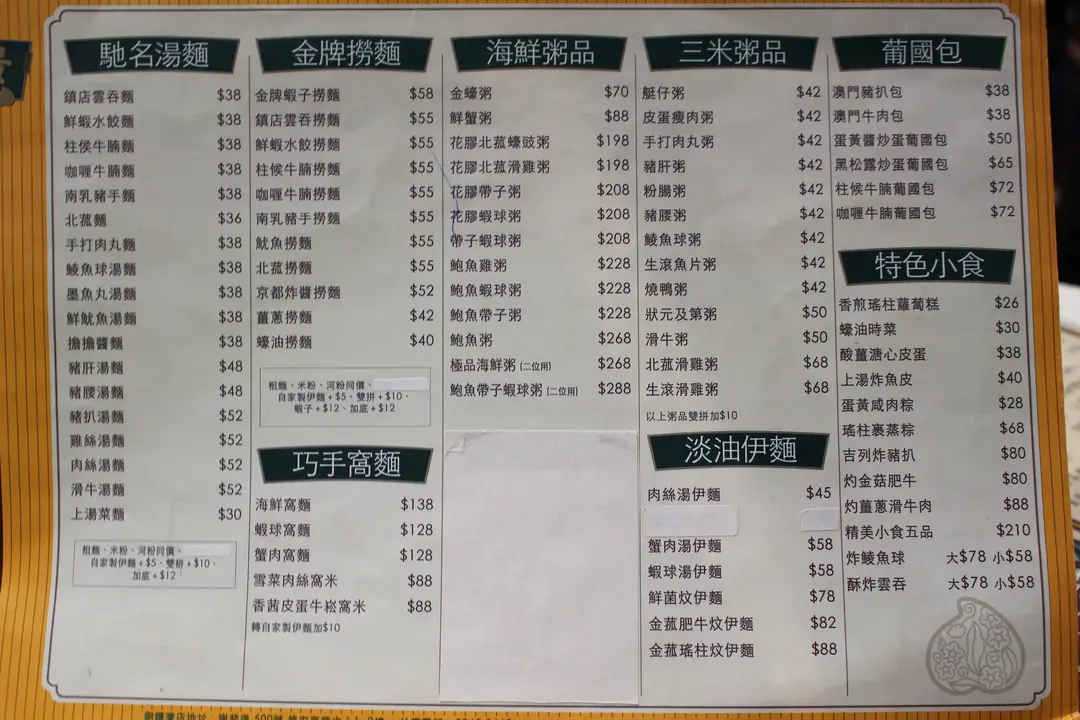 馳名湯麵
鎮店雲吞麵 $38
鮮蝦水餃麵 $38
柱侯牛腩麵 $38
咖喱牛腩麵 $38
南乳豬手麵 $38
北菰麵 $36
手打肉丸麵 $38
鯪魚球湯麵 $38
墨魚丸湯麵 $38
鮮魷魚湯麵 $38
擔擔醬麵 $38
豬肝湯麵 $48
豬腰湯麵 $48
豬扒湯麵 $52
雞絲湯麵 $52
肉絲湯麵 $52
滑牛湯麵 $52
上湯菜麵 $30
粗麵、米粉、河粉同價、
自家製伊麵+$5、雙拼+$10、
加底+$12
金牌撈麵
金牌蝦子撈麵 $58
鎮店雲吞撈麵 $55
鮮蝦水餃撈麵 $55
柱侯牛腩撈麵 $55
咖喱牛腩撈麵 $55
南乳豬手撈麵 $55
魷魚撈麵 $55
北菰撈麵 $55
京都炸醬撈麵 $52
薑蔥撈麵 $42
蠔油撈麵 $40
粗麵、米粉、河粉同價、
自家製伊麵+$5、雙拼+$10、
蝦子+$12、加底+$12
巧手窩麵
海鮮窩麵 $138
蝦球窩麵 $128
蟹肉窩麵 $128
雪菜肉絲窩米 $88
香茜皮蛋牛崧窩米 $88
轉自家製伊麵加$10
海鮮粥品
金蠔粥 $70
鮮蟹粥 $88
花膠北菰蠔豉粥 $198
花膠北菰滑雞粥 $198
花膠帶子粥 $208
花膠蝦球粥 $208
帶子蝦球粥 $208
鮑魚雞粥 $228
鮑魚蝦球粥 $228
鮑魚帶子粥 $228
鮑魚粥 $268
極品海鮮粥(二位用) $268
鮑魚帶子蝦球粥(二位用) $288
三米粥品
艇仔粥 $42
皮蛋瘦肉粥 $42
手打肉丸粥 $42
豬肝粥 $42
粉腸粥 $42
豬腰粥 $42
鯪魚球粥 $42
生滾魚片粥 $42
燒鴨粥 $42
狀元及第粥 $50
滑牛粥 $50
北菰滑雞粥 $68
生滾滑雞粥 $68
以上粥品雙拼加$10
淡油伊麵
肉絲湯伊麵 $45
蟹肉湯伊麵 $58
蝦球湯伊麵 $58
鮮菌炆伊麵 $78
金菰肥牛炆伊麵 $82
金菰瑤柱炆伊麵 $88
葡國包
澳門豬扒包 $38
澳門牛肉包 $38
蛋黃醬炒蛋葡國包 $50
黑松露炒蛋葡國包 $65
柱候牛腩葡國包 $72
咖喱牛腩葡國包 $72
特色小食
香煎瑤柱蘿蔔糕 $26
蠔油時菜 $30
酸薑溏心皮蛋 $38
上湯炸魚皮 $40
蛋黃咸肉粽 $28
瑤柱裹蒸粽 $68
吉列炸豬扒 $80
灼金菇肥牛 $80
灼薑蔥滑牛肉 $88
精美小食五品 $210
炸鯪魚球 大$78 小$58
酥炸雲吞 大$78 小$58